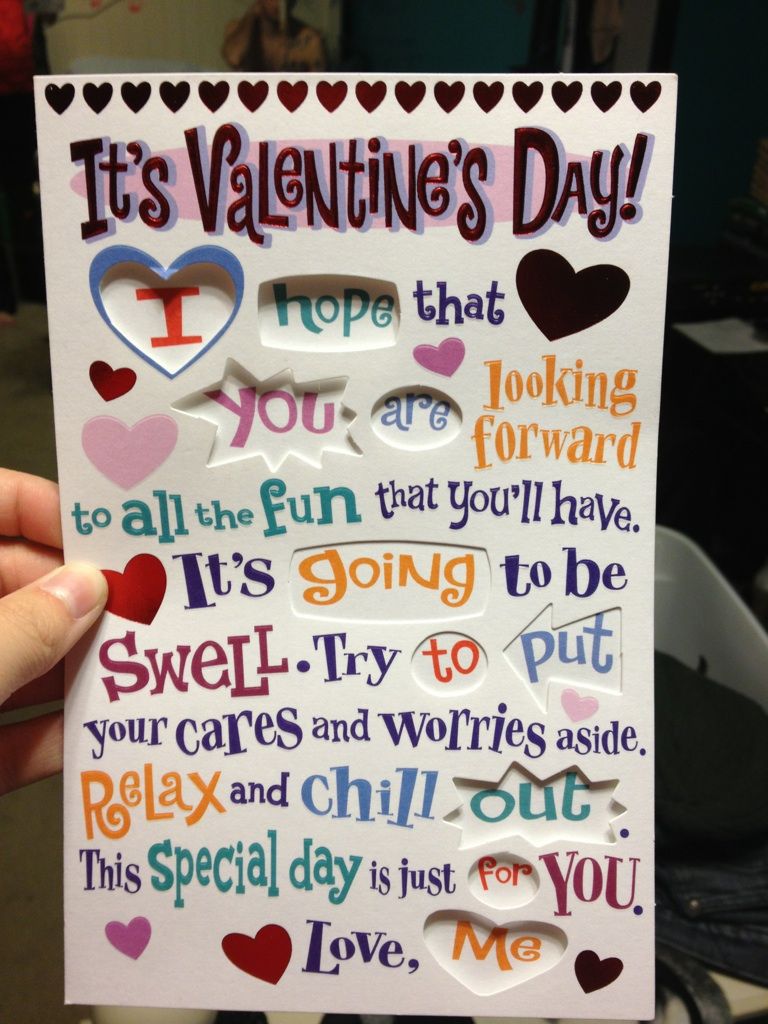 It's Valentine's Day!
I hope that
you are looking forward
to all the fun that you'll have.
It's going to be
Swell. Try to put
your cares and worries aside.
Relax and chill out.
This special day is just for YOU.
Love, Me